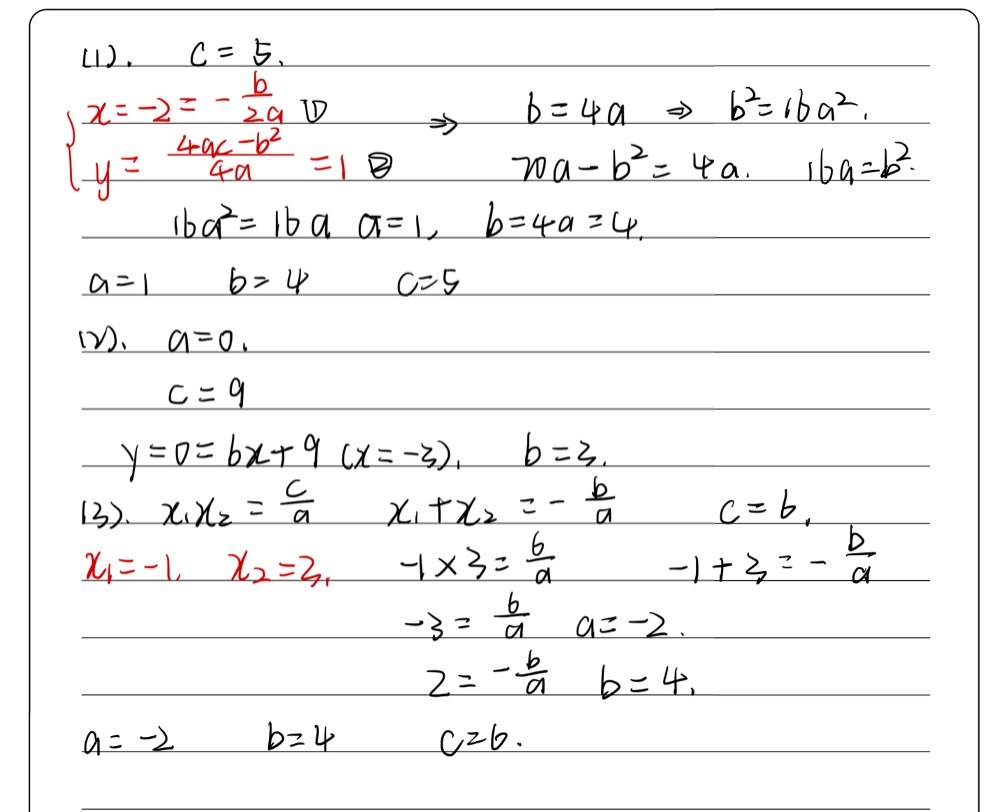 (1). c = 5.
x = -2 = -b/2a ① ⇒ b = 4a ⇒ b² = 16a².
y = (4ac-b²)/4a = 1 ② 20a - b² = 4a. 16a = b².
16a² = 16a a = 1, b = 4a = 4.
a = 1 b = 4 c = 5
(2). a = 0.
c = 9
y = 0 = bx + 9 (x = -3). b = 3.
(3). x₁x₂ = c/a x₁ + x₂ = -b/a c = 6.
x₁ = -1. x₂ = 3. -1 × 3 = 6/a -1 + 3 = -b/a
-3 = 6/a a = -2.
2 = -b/a b = 4.
a = -2 b = 4 c = 6.